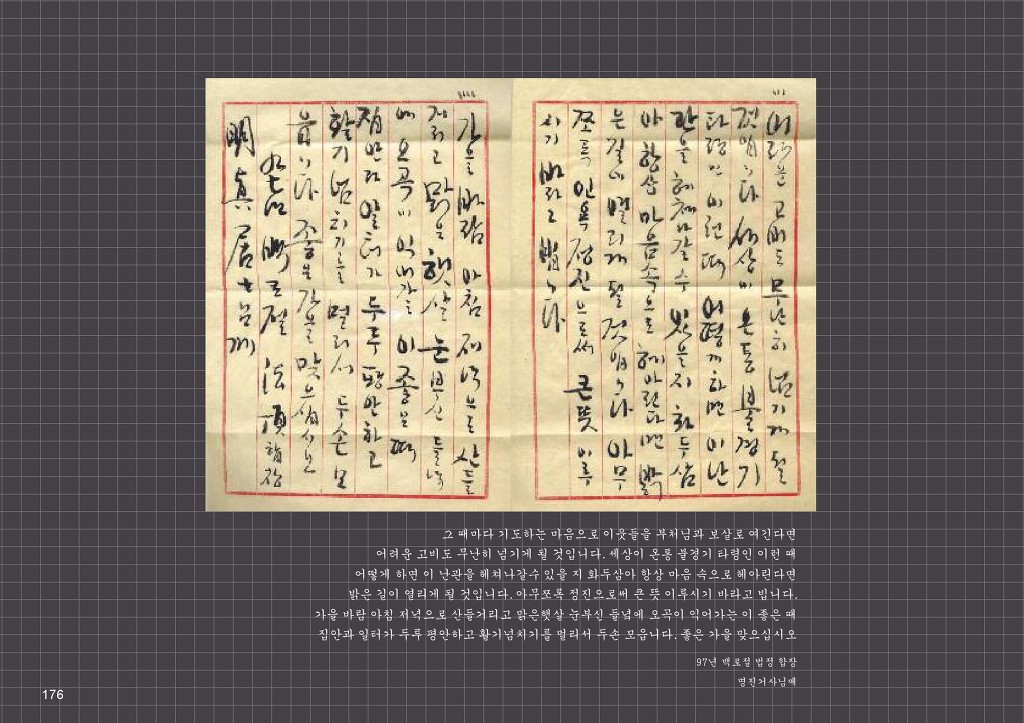 어려운 고비도 무난히 넘기게 될
것입니다 세상이 온통 불경기
타령인 이런 때 어떻게 하면 이 난
관을 헤쳐나갈 수 있을 지 화두삼
아 항상 마음속으로 헤아린다면 밝
은 길이 열리게 될 것입니다 아무
쪼록 인욕 정진으로써 큰 뜻 이루
시기 바라고 빕니다
가을 바람 아침 저녁으로 산들
거리고 맑은 햇살 눈부신 들녘
에 오곡이 익어가는 이 좋은 때
집안과 일터가 두루 평안하고
활기 넘치기를 멀리서 두손 모
읍니다 좋은 가을 맞으십시오
백로절 法頂 합장
明眞居士님께
그 때마다 기도하는 마음으로 이웃들을 부처님과 보살로 여긴다면
어려운 고비도 무난히 넘기게 될 것입니다. 세상이 온통 불경기 타령인 이런 때
어떻게 하면 이 난관을 헤쳐나갈수 있을 지 화두삼아 항상 마음 속으로 헤아린다면
밝은 길이 열리게 될 것입니다. 아무쪼록 정진으로써 큰 뜻 이루시기 바라고 빕니다.
가을 바람 아침 저녁으로 산들거리고 맑은햇살 눈부신 들녘에 오곡이 익어가는 이 좋은 때
집안과 일터가 두루 평안하고 활기넘치기를 멀리서 두손 모읍니다. 좋은 가을 맞으십시오
97년 백로절 법정 합장
명진거사님께
176